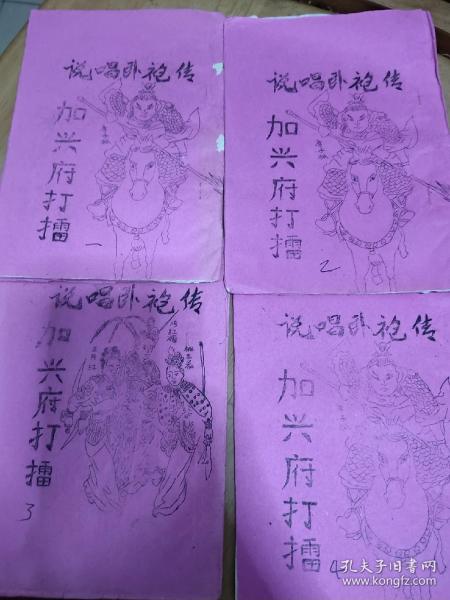 说唱卧袍传
加兴府打擂
一
说唱卧袍传
加兴府打擂
2
说唱卧袍传
加兴府打擂
3
说唱卧袍传
加兴府打擂
4
孔夫子旧书网
www.kongfz.com